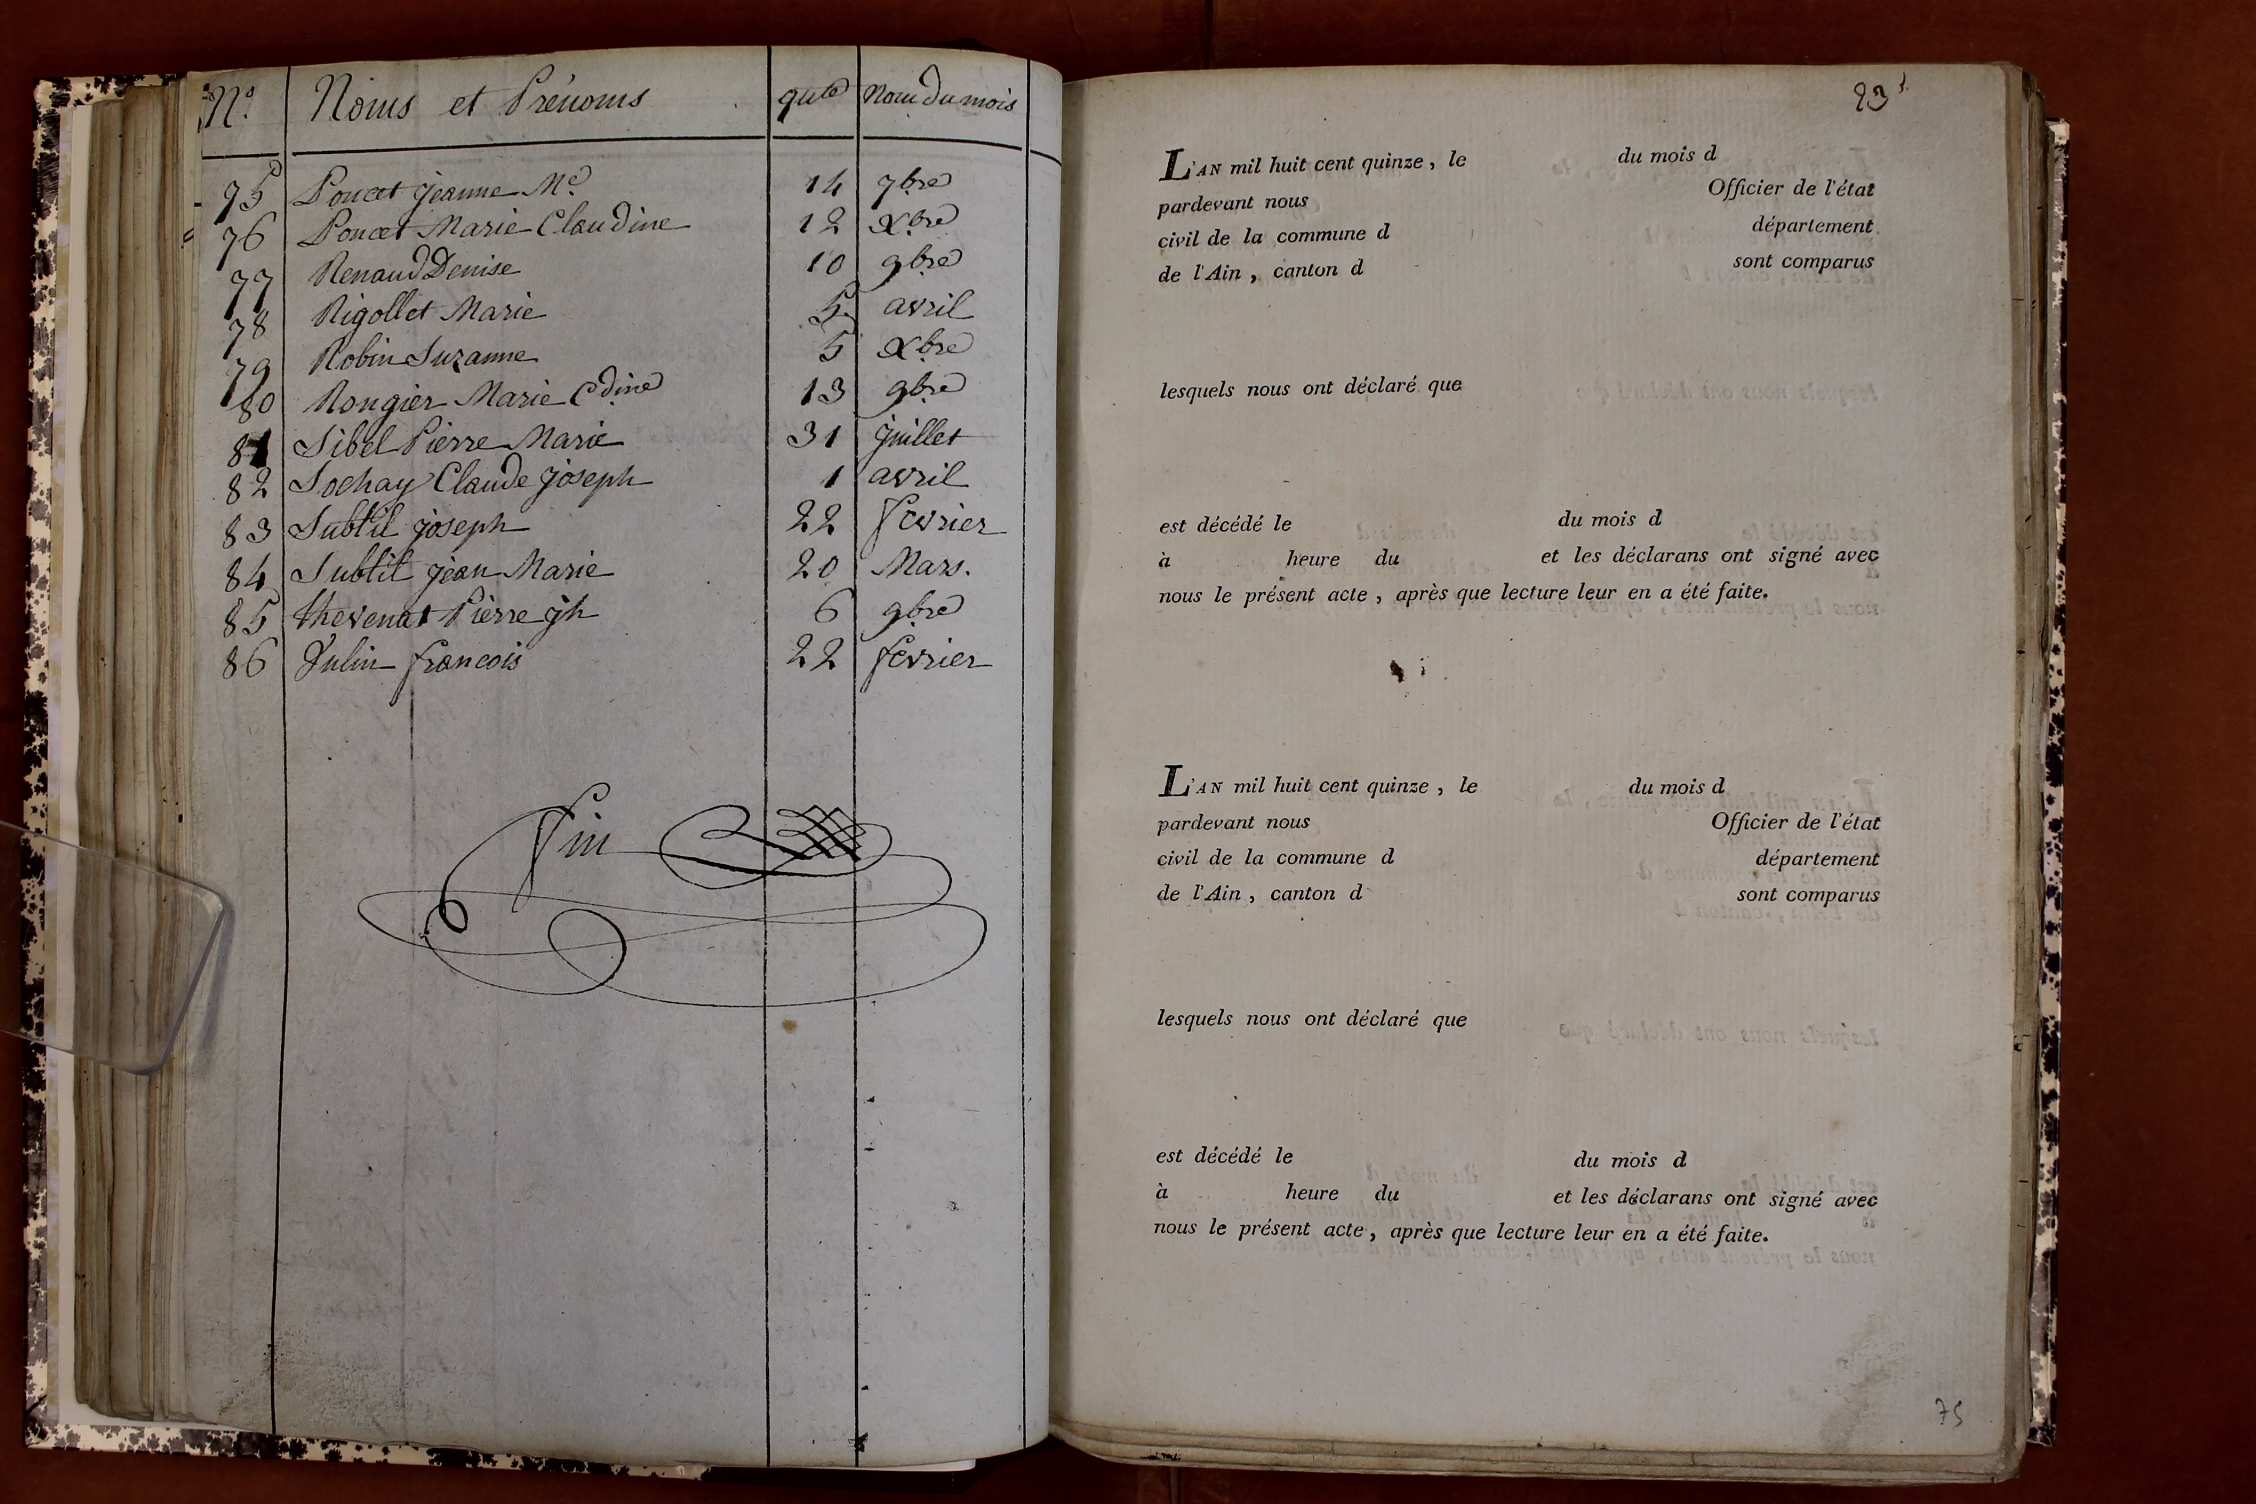 N.o Noms et Prénoms qte Nom du mois
75 Poncet jeanne Me 14 7bre
76 Poncet Marie Claudine 12 Xbre
77 Renaud Denise 10 9bre
78 Rigollet Marie 5 avril
79 Robin Suzanne 5 Xbre
80 Rongier Marie Cdine 13 9bre
81 Sibel Pierre Marie 31 juillet
82 Sochay Claude joseph 1 avril
83 Subtil joseph 22 fevrier
84 Subtil jean Marie 20 Mars.
85 thevenat Pierre jh 6 9bre
86 Julin francois 22 fevrier
Fin
23
L'AN mil huit cent quinze, le du mois d
pardevant nous Officier de l'état
civil de la commune d département
de l'Ain, canton d sont comparus
lesquels nous ont déclaré que
est décédé le du mois d
à heure du et les déclarans ont signé avec
nous le présent acte, après que lecture leur en a été faite.
L'AN mil huit cent quinze, le du mois d
pardevant nous Officier de l'état
civil de la commune d département
de l'Ain, canton d sont comparus
lesquels nous ont déclaré que
est décédé le du mois d
à heure du et les déclarans ont signé avec
nous le présent acte, après que lecture leur en a été faite.
75